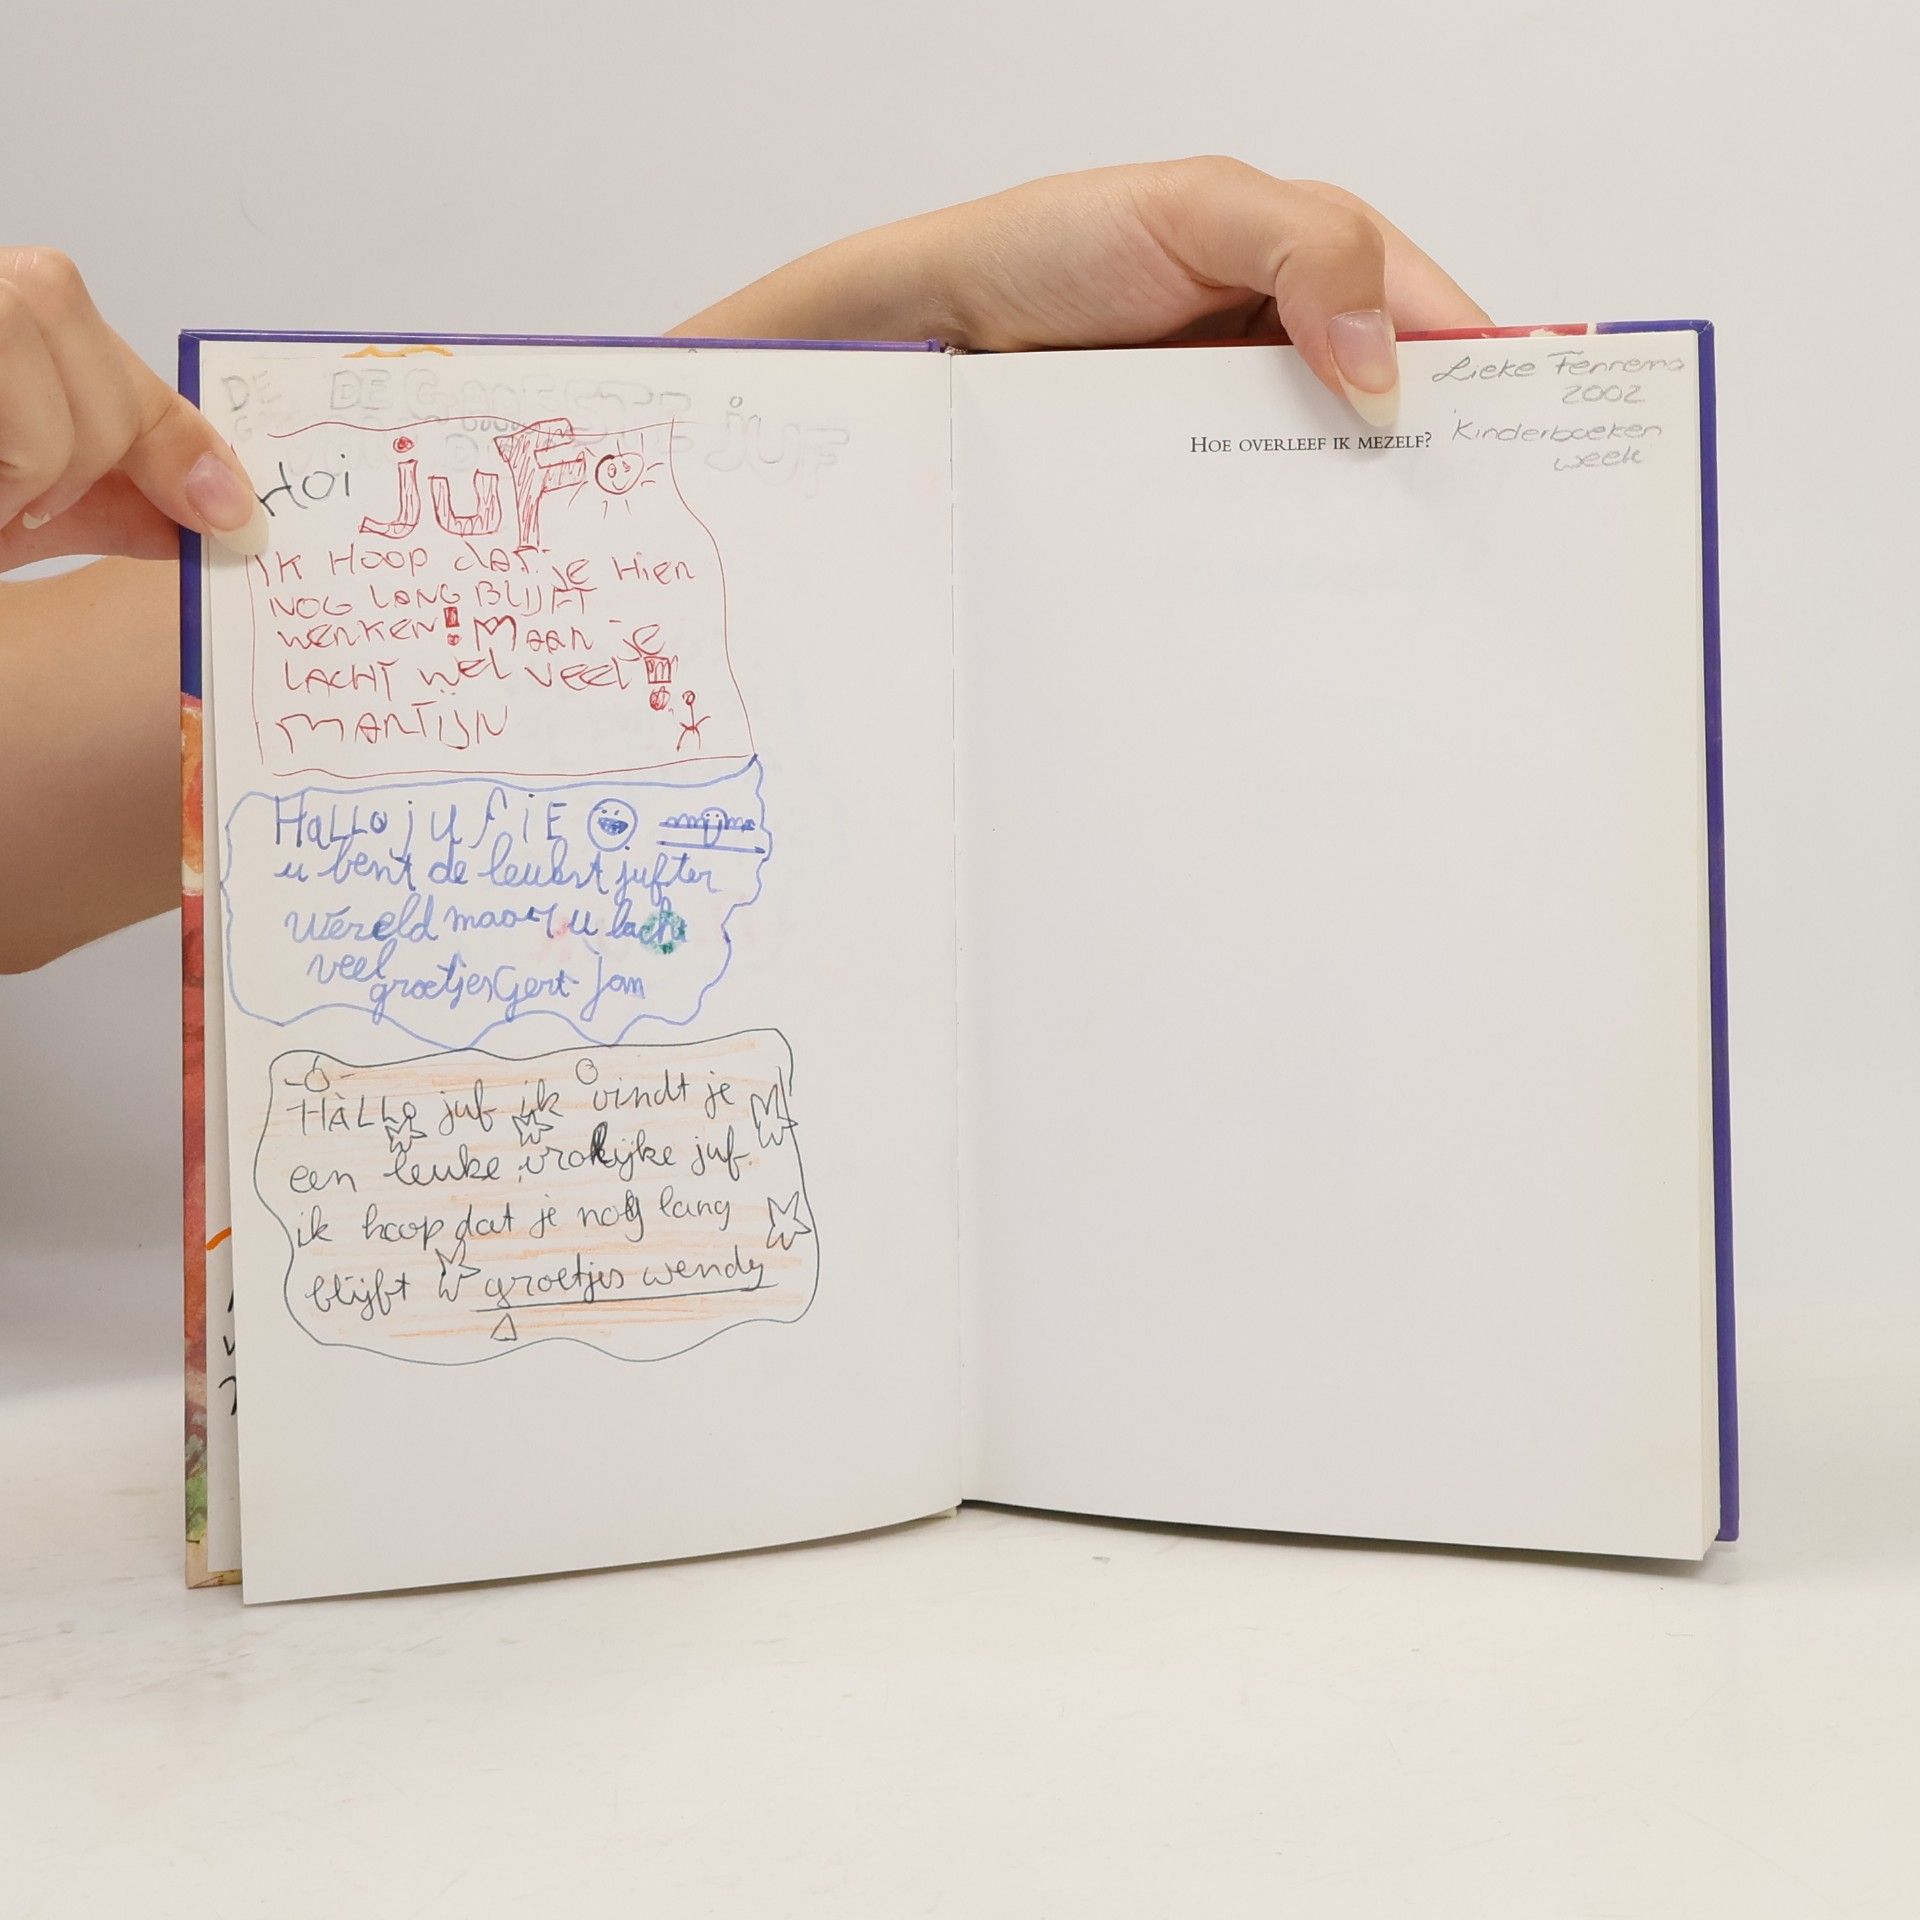 DE DE GAAFSTE JUF
Hoi juf
IK HOOP dat je Hier
NOG LANG BLIJFT
WERKEN! Maar je
LACHT wel veel!!
MARTIJN
HaLLo jufiE
u bent de leukst juf ter
Wereld maar u lacht
veel
groetjes Gert-jan
HALLo juf ik vindt je
een leuke, vrolijke juf.
ik hoop dat je nog lang
blijft groetjes wendy
Lieke Fennema
2002
HOE OVERLEEF IK MEZELF?
Kinderboeken
week